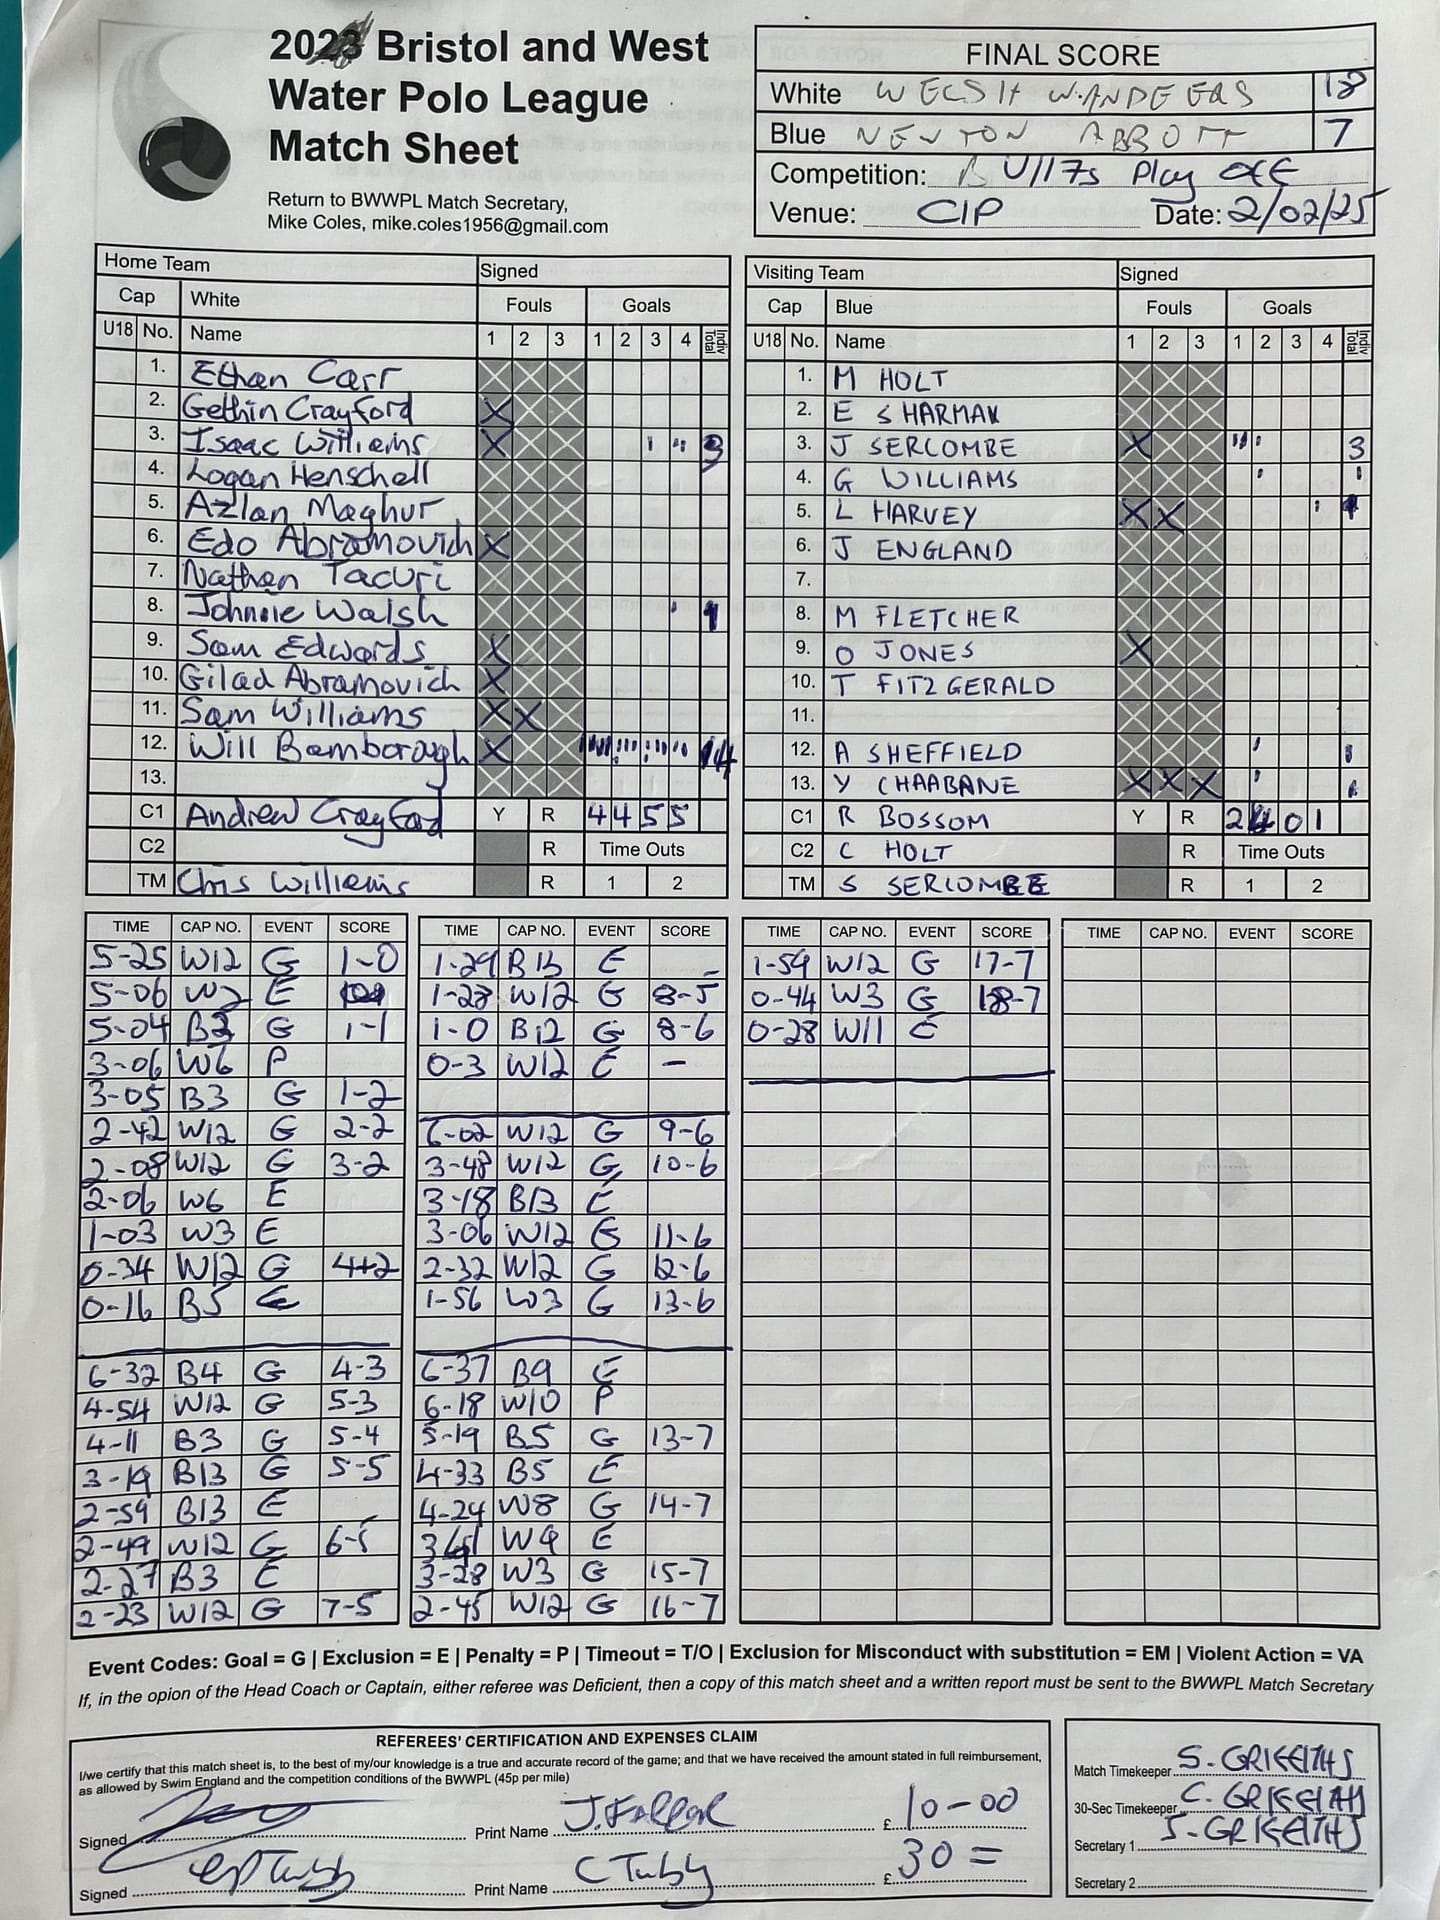 2023 Bristol and West
Water Polo League
Match Sheet
Return to BWWPL Match Secretary,
Mike Coles, mike.coles1956@gmail.com
FINAL SCORE
White WELSH WANDEERS 18
Blue NEWTON ABBOTT 7
Competition: U/17s Play OFF
Venue: CIP Date: 2/02/25
Home Team Signed
Cap White Fouls Goals
U18 No. Name 1 2 3 1 2 3 4 Indiv Total
1. Ethan Carr
2. Gethin Crayford X
3. Isaac Williams X ı ıı 3
4. Logan Henschell
5. Azlan Maghur
6. Edo Abramovich X
7. Nathan Tacuri
8. Johnnie Walsh ı 1
9. Sam Edwards X
10. Gilad Abramovich X
11. Sam Williams X X
12. Will Bamborough X 14
13.
C1 Andrew Crayford Y R 4 4 5 5
C2 R Time Outs
TM Chris Williams R 1 2
Visiting Team Signed
Cap Blue Fouls Goals
U18 No. Name 1 2 3 1 2 3 4 Indiv Total
1. M HOLT
2. E SHARMAN
3. J SERCOMBE X ıı ı 3
4. G WILLIAMS ı ı
5. L HARVEY X X ı 1
6. J ENGLAND
7.
8. M FLETCHER
9. O JONES X
10. T FITZGERALD
11.
12. A SHEFFIELD ı 1
13. Y CHAABANE X X X ı 1
C1 R BOSSOM Y R 2 4 0 1
C2 C HOLT R Time Outs
TM S SERCOMBE R 1 2
TIME CAP NO. EVENT SCORE
5-25 W12 G 1-0
5-06 W2 E
5-04 B3 G 1-1
3-06 W6 P
3-05 B3 G 1-2
2-42 W12 G 2-2
2-08 W12 G 3-2
2-06 W6 E
1-03 W3 E
0-34 W12 G 4+2
0-16 B5 E
6-32 B4 G 4-3
4-54 W12 G 5-3
4-11 B3 G 5-4
3-19 B13 G 5-5
2-59 B13 E
2-49 W12 G 6-5
2-27 B3 E
2-23 W12 G 7-5
TIME CAP NO. EVENT SCORE
1-29 B13 E -
1-28 W12 G 8-5
1-0 B12 G 8-6
0-3 W12 E -
6-02 W12 G 9-6
3-48 W12 G 10-6
3-18 B13 E
3-06 W12 G 11-6
2-32 W12 G 12-6
1-56 W3 G 13-6
6-37 B9 E
6-18 W10 P
5-19 B5 G 13-7
4-33 B5 E
4-24 W8 G 14-7
W9 E
3-28 W3 G 15-7
2-45 W12 G 16-7
TIME CAP NO. EVENT SCORE
1-59 W12 G 17-7
0-44 W3 G 18-7
0-28 W11 E
TIME CAP NO. EVENT SCORE
Event Codes: Goal = G | Exclusion = E | Penalty = P | Timeout = T/O | Exclusion for Misconduct with substitution = EM | Violent Action = VA
If, in the opion of the Head Coach or Captain, either referee was Deficient, then a copy of this match sheet and a written report must be sent to the BWWPL Match Secretary
REFEREES' CERTIFICATION AND EXPENSES CLAIM
I/we certify that this match sheet is, to the best of my/our knowledge is a true and accurate record of the game; and that we have received the amount stated in full reimbursement,
as allowed by Swim England and the competition conditions of the BWWPL (45p per mile)
Signed Print Name J. £ 10-00
Signed Print Name C Tubby £ 30 =
Match Timekeeper S. GRIFFITHS
30-Sec Timekeeper C. GRIFFITHS
Secretary 1 J. GRIFFITHS
Secretary 2